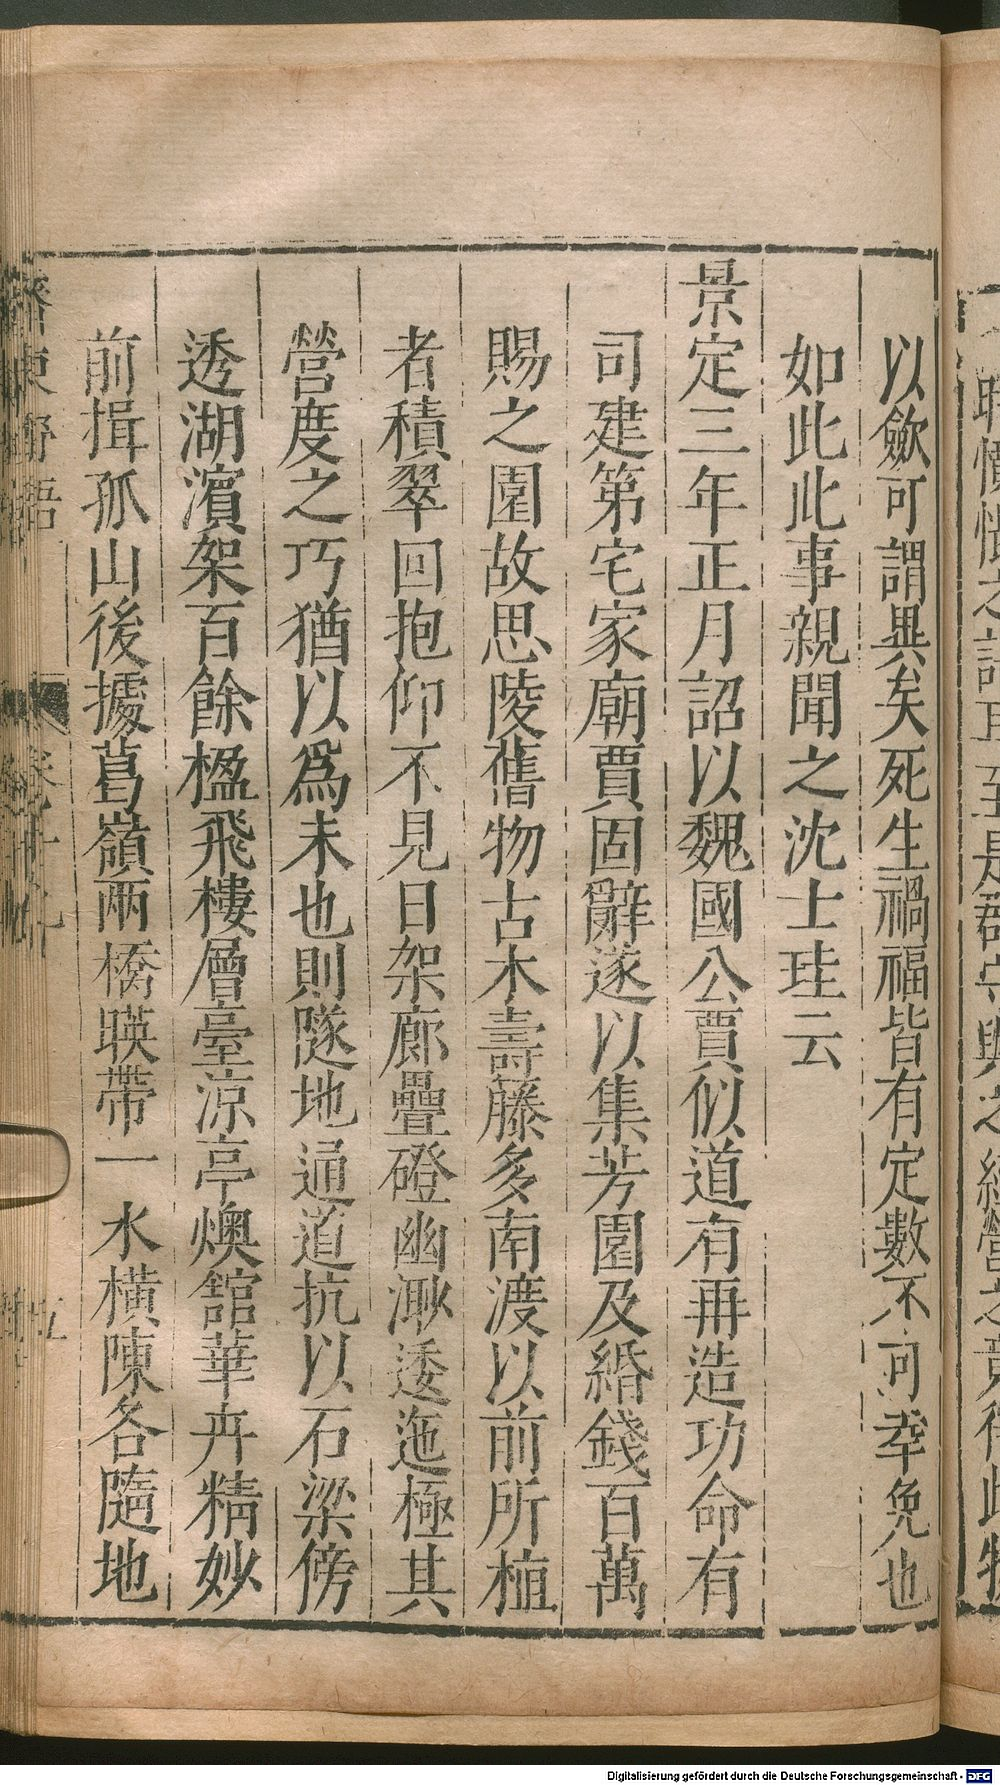 以斂可謂異矣死生禍福皆有定數不可幸免也
如此此事親聞之沈士珪云
景定三年正月詔以魏國公賈似道有再造功命有
司建第宅家廟賈固辭遂以集芳園及緡錢百萬
賜之園故思陵舊物古木壽籐多南渡以前所植
者積翠回抱仰不見日架廊疊磴幽渺逶迤極其
營度之巧猶以爲未也則隧地通道抗以石梁傍
透湖濱架百餘楹飛樓層臺涼亭燠館華卉精妙
前揖孤山後據葛嶺兩橋暎帶一水橫陳各隨地
齊東野語
Digitalisierung gefördert durch die Deutsche Forschungsgemeinschaft - DFG